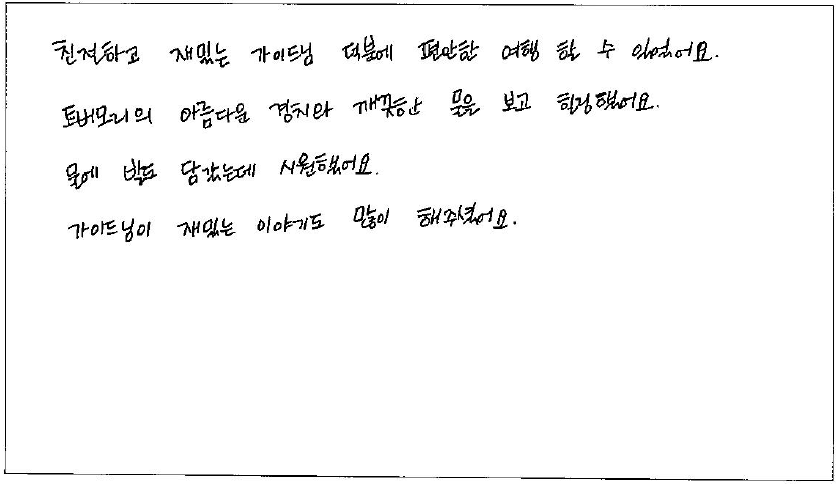 친절하고 재밌는 가이드님 덕분에 편안한 여행 할 수 있었어요.
토버모리의 아름다운 경치와 깨끗한 물을 보고 힐링했어요.
물에 발도 담갔는데 시원했어요.
가이드님이 재밌는 이야기도 많이 해주셨어요.